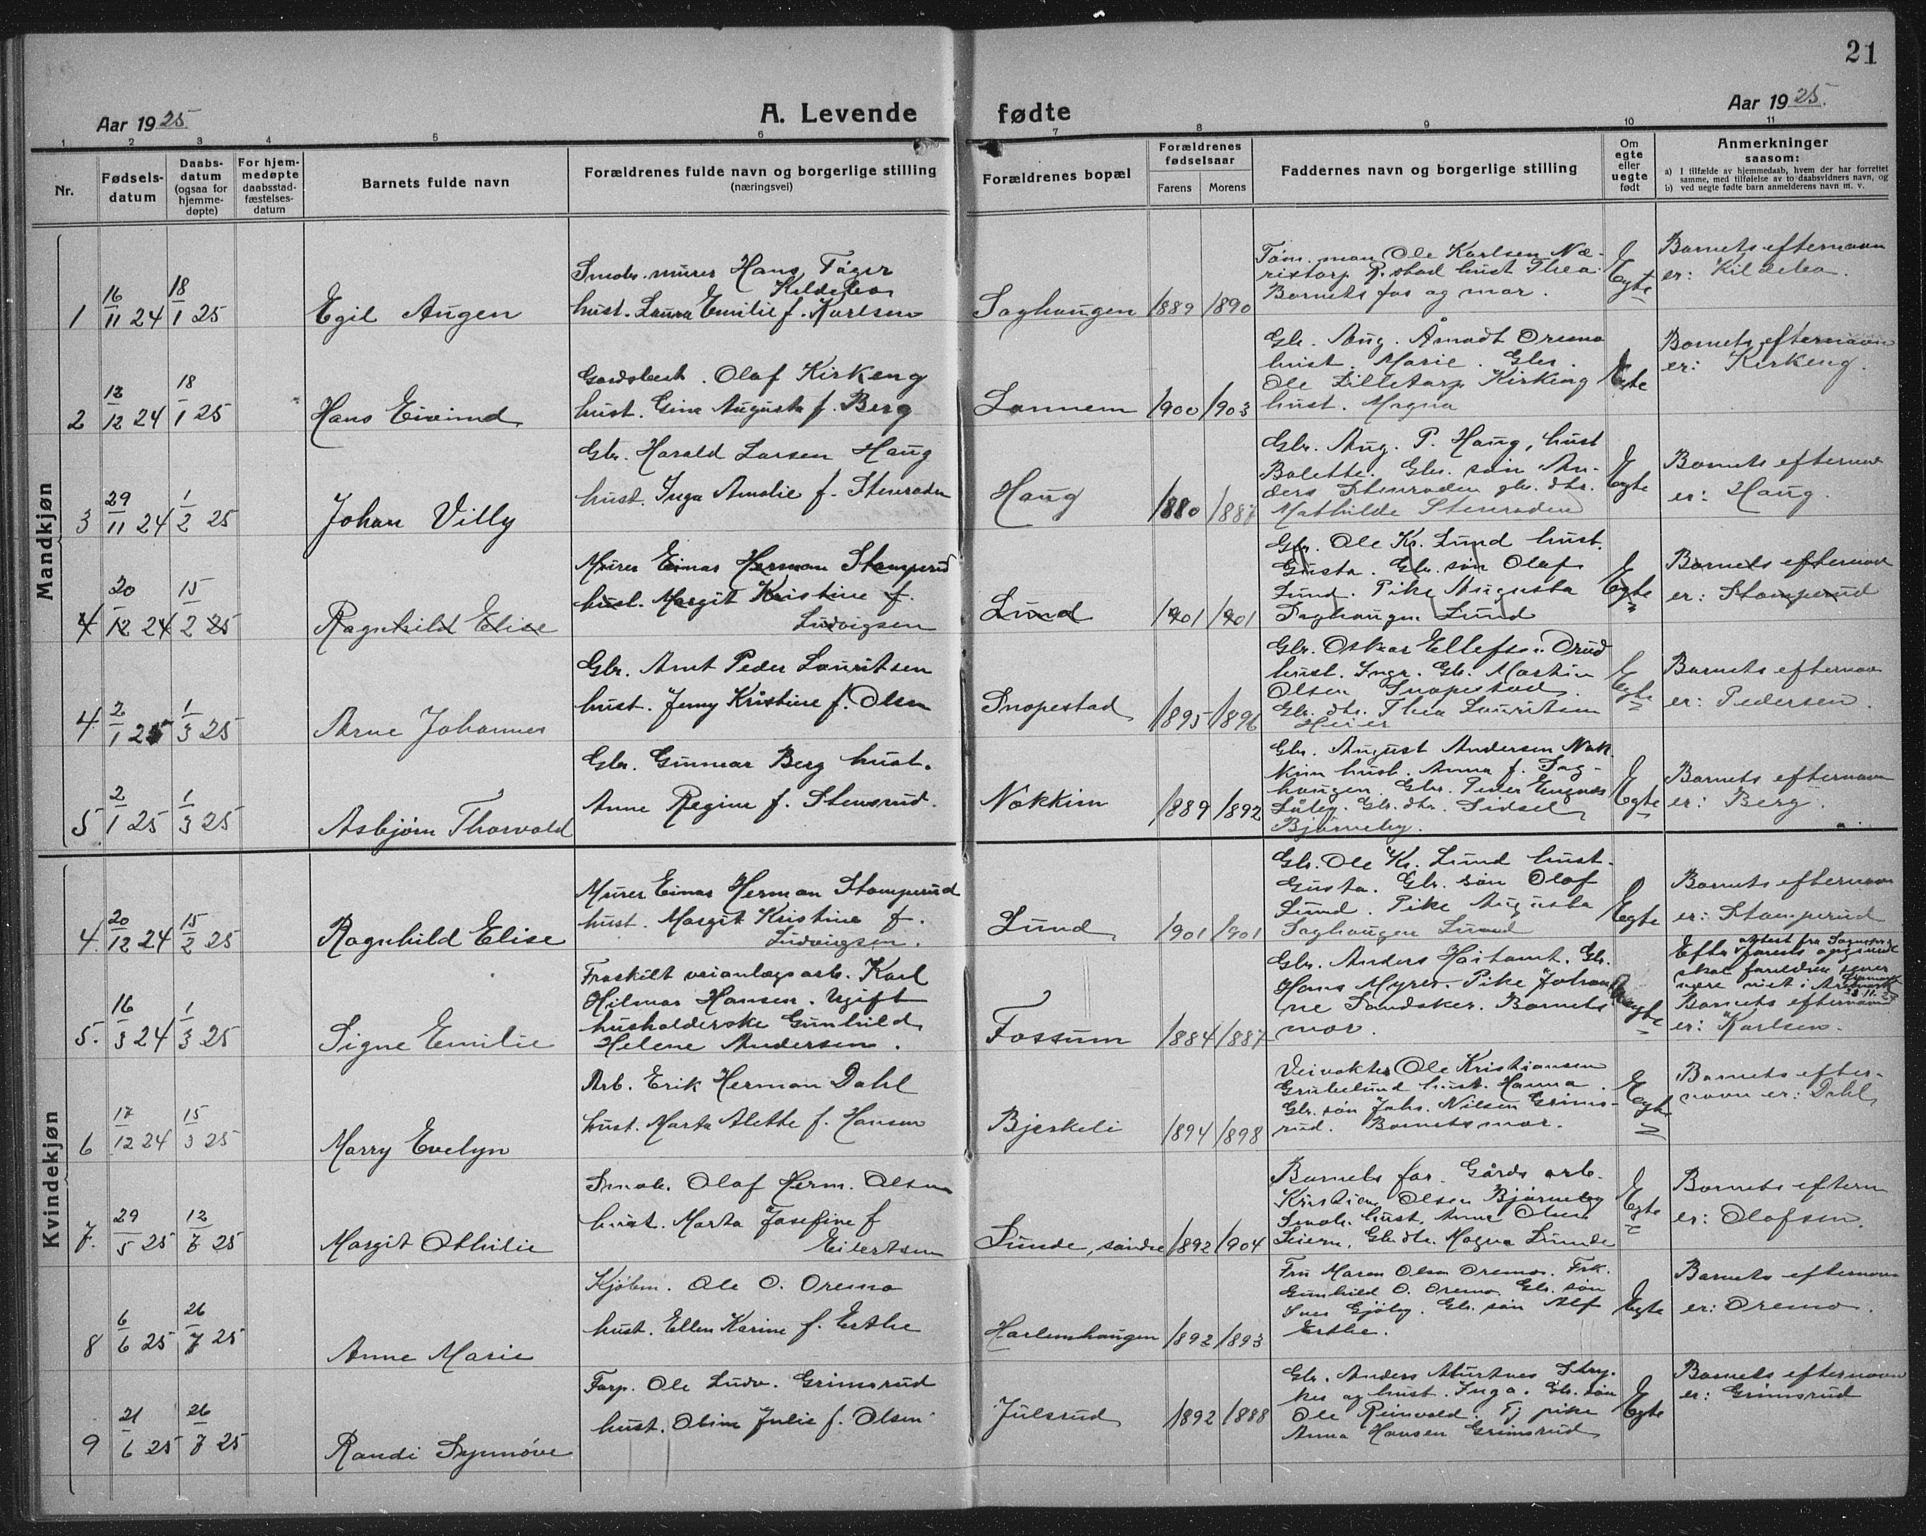 21
Aar 1925
A. Levende
fødte
Aar 1925.
1 2 3 4 5 6 7 8 9 10 11
Nr.
Fødsels-
datum
Daabs-
datum
(ogsaa for
hjemme-
døpte)
For hjem-
medøpte
daabsstad-
fæstelses-
datum
Barnets fulde navn
Forældrenes fulde navn og borgerlige stilling
(næringsvei)
Forældrenes bopæl
Forældrenes
fødselsaar
Farens Morens
Faddernes navn og borgerlige stilling
Om
egte
eller
uegte
født
Anmerkninger
saasom:
a) I tilfælde av hjemmedaab, hvem der har forrettet
samme, med tilføielse av to daabsvidners navn, og
b) ved uegte født barn anmelderens navn m. v.
Mandkjøn
1 16/11 24 18/1 25 Egil Augen
Smobr. murer Hans Tøger
Kildebo
hust. Laura Emilie f. Karlsen
Saghaugen 1889 1890
Ole Karlsen Næ-
ristorp R.stad hust Thea
Barnets far og mor.
Egte
Barnets efternavn
er: Kildebo.
2 13/12 24 18/1 25 Hans Eivind
Gardsbest. Olaf Kirkeng
hust. Gine Augusta f. Berg
Lannem 1900 1903
Gbr. Aug. Arnodt Oremo
hust. Marie. Gbr.
Ole Lilletorp Kirkeng
hust. Magna
Egte
Barnets efternavn
er: Kirkeng.
3 29/11 24 1/2 25 Johan Villy
Gbr. Harald Larsen Haug
hust. Inga Amalie f. Stenroden
Haug 1880 1887
Gbr. Aug. P. Haug, hust
Bolette. Gbr. søn An-
ders Stenroden gbr. dtr.
Mathilde Stenroden
Egte
Barnets efternavn
er: Haug.
4 20/12 24 15/2 25 Ragnhild Elise
Murer Einar Herman Stomperud
hust. Margit Kristine f.
Ludvigsen
Lund 1901 1901
Gbr. Ole Kr. Lund hust.
Gusta. Gbr. søn Olaf
Lund. Pike Augusta
Saghaugen Lund
Egte
Barnets efternavn
er: Stomperud
4. 2/1 25 1/3 25 Arne Johannes
Gbr. Arnt Peder Lauritsen
hust. Jenny Kristine f. Olsen
Snopestad 1895 1896
Gbr. Oskar Ellefsen Orud
hust. Ingr. Gb. Martin
Olsen Snopestad.
Gbr. dtr. Thea Lauritsen
Heier
Egte
Barnets efternavn
er: Pedersen.
5 2/1 25 1/3 25 Asbjørn Thorvald
Gbr. Gunnar Berg hust.
Anne Regine f. Stensrud.
Nokkim 1889 1892
Gbr. August Andersen Nok-
kim hust. Anna f. Sag-
haugen. Gbr. Peder Engnes
Låby. Gbr. dtr. Sidsel
Bjørneby.
Egte
Barnets efternavn
er: Berg.
Kvindekjøn
4. 20/12 24 15/2 25 Ragnhild Elise
Murer Einar Herman Stomperud
hust. Margit Kristine f.
Ludvigsen.
Lund 1901 1901
Gbr. Ole Kr. Lund hust.
Gusta. Gbr. søn Olaf
Lund. Pike Augusta
Saghaugen Lund
Egte
Barnets efternavn
er: Stomperud
5. 16/3 24 1/3 25 Signe Emilie
Fraskilt veianlægsarb. Karl
Hilmar Hansen. Ugift
husholderske Gunhild
Helene Andersen.
Fossum 1884 1887
Gbr. Anders Høitomt. Gbr.
Hans Myrer. Pike Johan-
ne Sandsker. Barnets
mor.
Uegte
Efter attest fra Sogneprest
skal foreldrene senere
være viet i Aremark
Barnets efternavn
er: Karlsen.
6 17/12 24 15/3 25 Marry Evelyn
Arb. Erik Herman Dahl
hust. Marta Alette f. Hansen
Bjerkeli 1894 1898
Veivokter Ole Kristiansen
Grubelund hust. Hanna.
Gbr. søn Johs. Nilsen Grims-
rud. Barnets mor.
Egte
Barnets efter-
navn er: Dahl
7. 29/5 25 12/7 25 Margit Othilie
Smobr. Olaf Herm. Olsen
hust. Marta Josefine f
Eilertsen
Lunde, søndre 1892 1904
Barnets far. Gårds arb.
Kristian Olsen Bjørneby
Smobr. hust. Anne Olsen
Leiern, Gbr. dtr. Magna Lunde
Egte
Barnets eftern
er: Olafsen.
8 6/6 25 26/7 25 Anne Marie
Kjøbm. Ole O. Oremo
hust. Ellen Karine f. Erthe
Harlemhaugen 1892 1893
Fru Maren Olsen Oremo. Frk.
Gunhild O. Oremo. Gbr. søn
Sven Gjølby. Gbr. søn Alf
Erthe.
Egte
Barnets efternavn
er: Oremo.
9 21/6 25 26/7 25 Randi Synnøve
Forp. Ole Ludv. Grimsrud
hust. Oline Julie f. Olsen
Julsrud 1892 1888
Gbr. Anders Murtnes Stry-
ker og hust. Inga. Gbr. søn
Ole Reinvold. Tj. pike
Anna Hansen Grimsrud
Egte
Barnets efternavn
er: Grimsrud